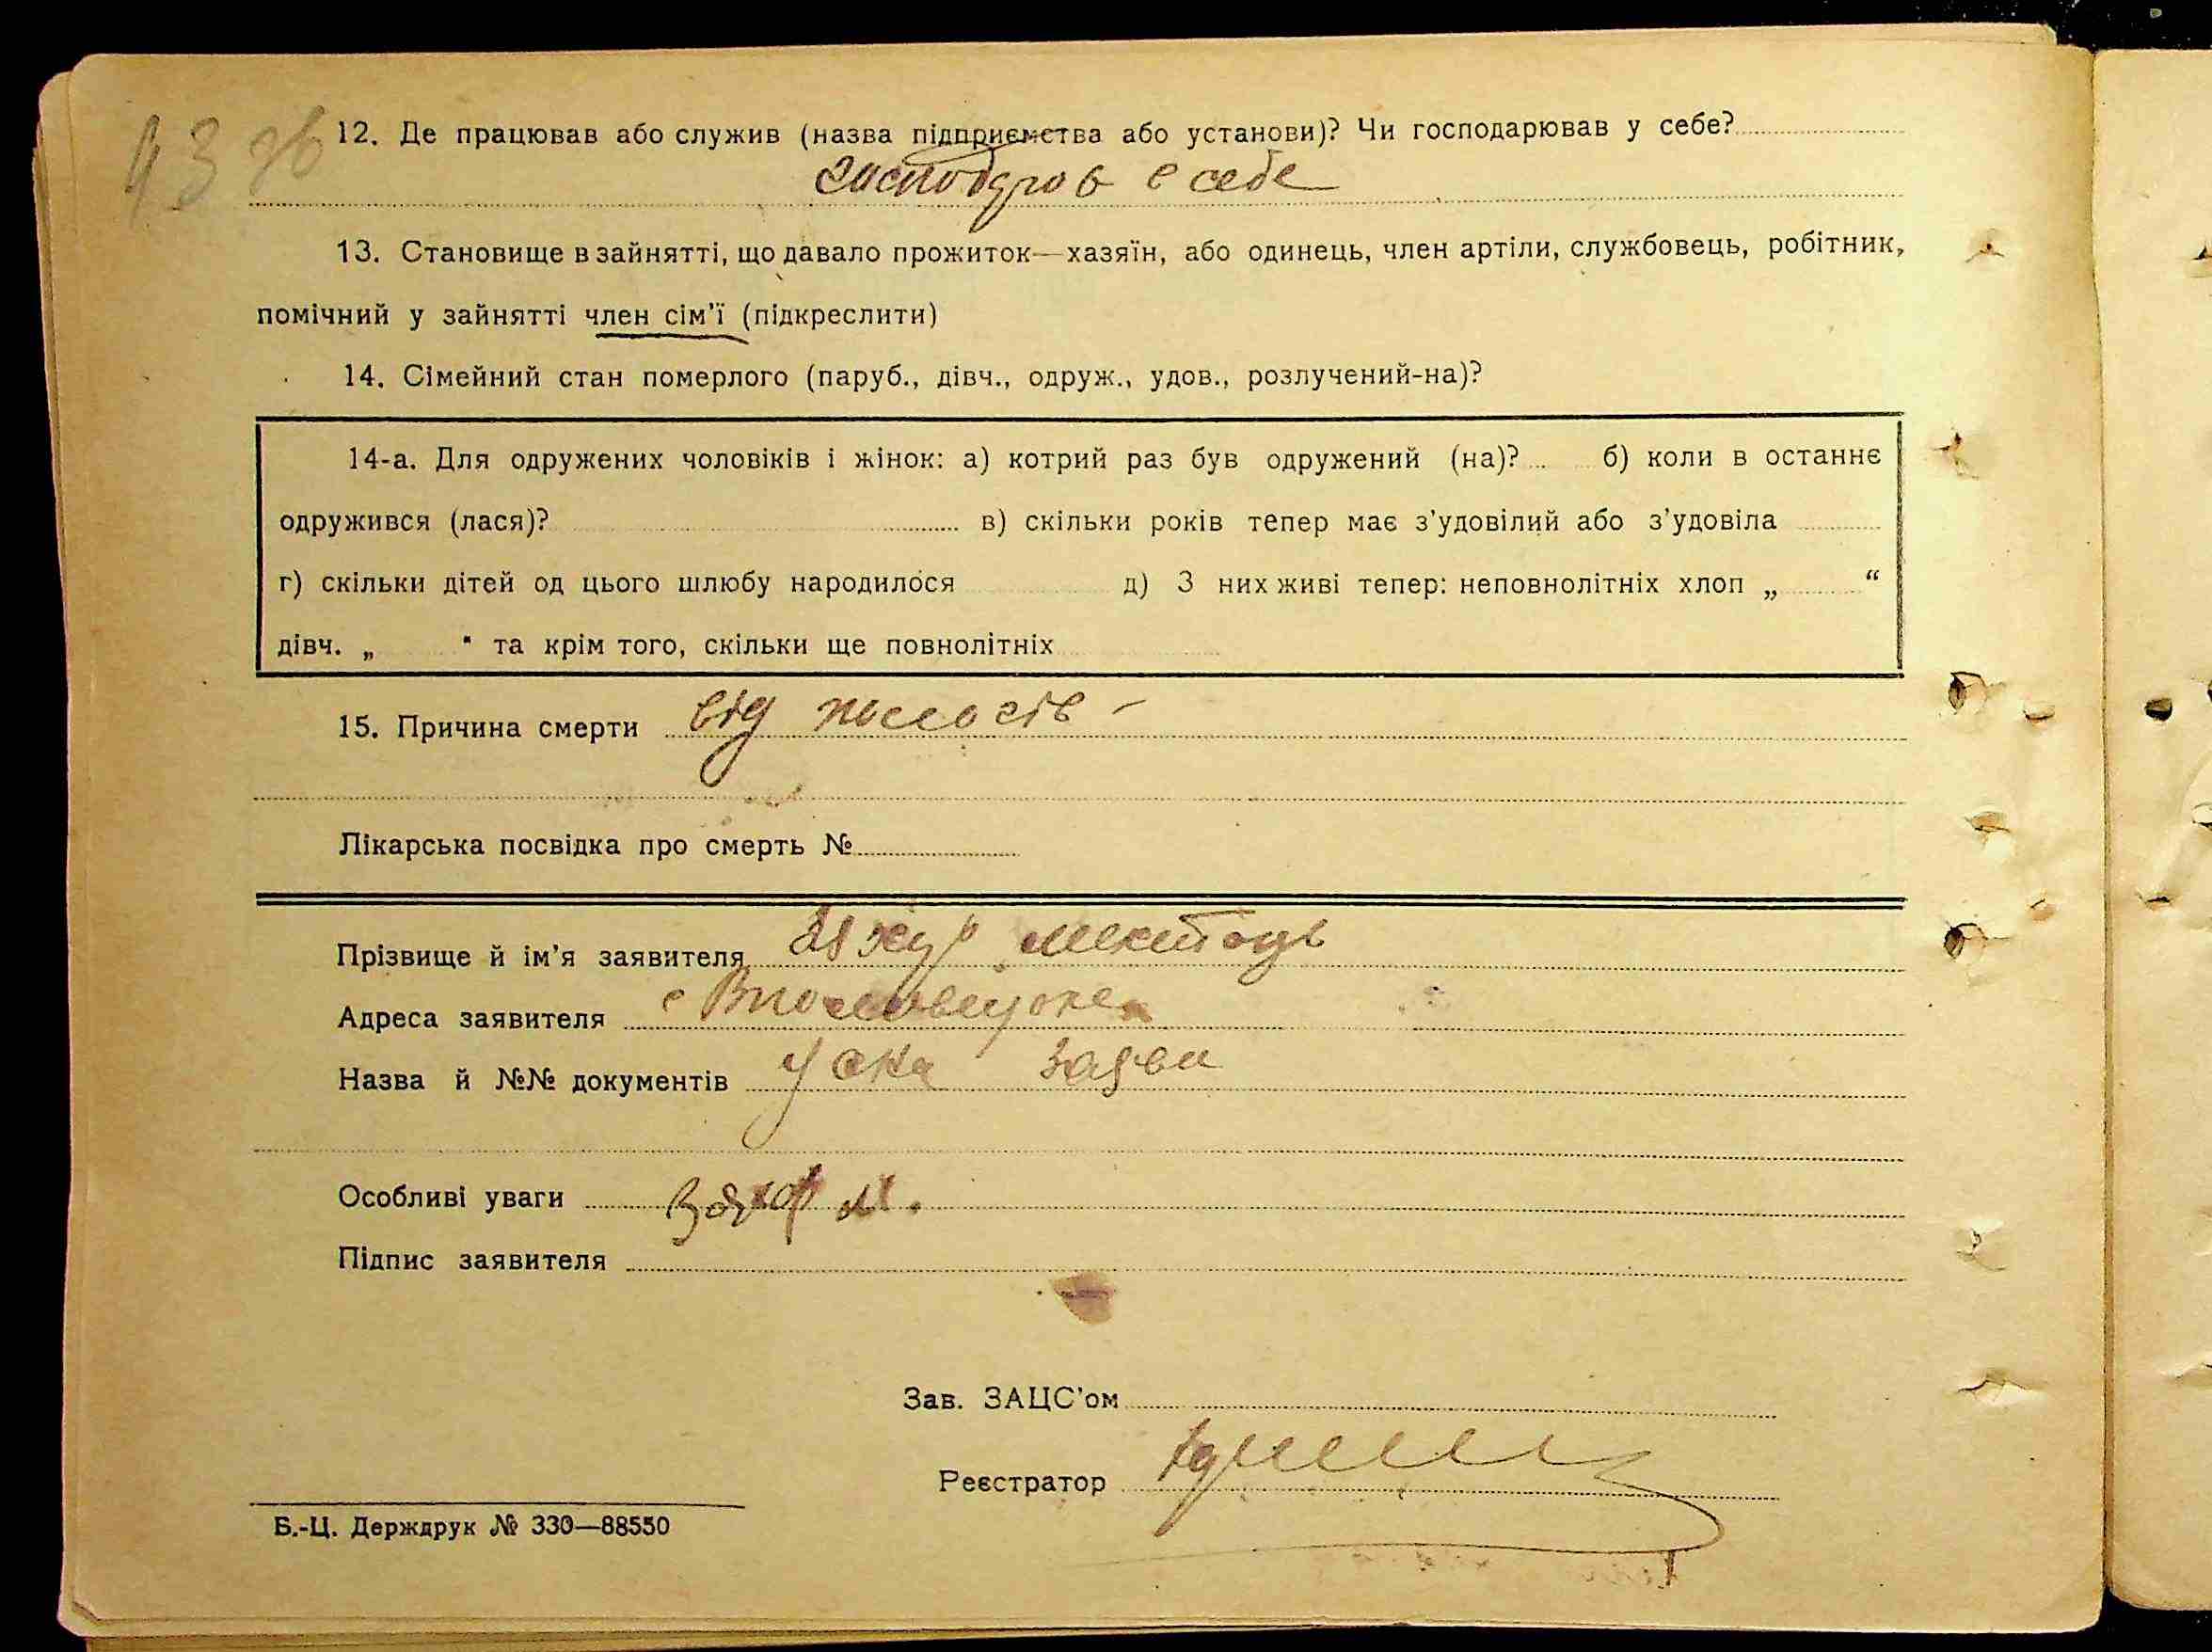 43 зв
12. Де працював або служив (назва підприємства або установи)? Чи господарював у себе?
в себе
13. Становище в зайнятті, що давало прожиток—хазяїн, або одинець, член артіли, службовець, робітник,
помічний у зайнятті член сім'ї (підкреслити)
14. Сімейний стан померлого (паруб., дівч., одруж., удов., розлучений-на)?
14-а. Для одружених чоловіків і жінок: а) котрий раз був одружений (на)? б) коли в останнє
одружився (лася)? в) скільки років тепер має з'удовілий або з'удовіла
г) скільки дітей од цього шлюбу народилося д) З них живі тепер: неповнолітніх хлоп „ “
дівч. „ “ та крім того, скільки ще повнолітніх
15. Причина смерти від
Лікарська посвідка про смерть №
Прізвище й ім'я заявителя
Адреса заявителя
Назва й №№ документів Усна заява
Особливі уваги
Підпис заявителя
Зав. ЗАЦС'ом
Реєстратор
Б.-Ц. Держдрук № 330—88550